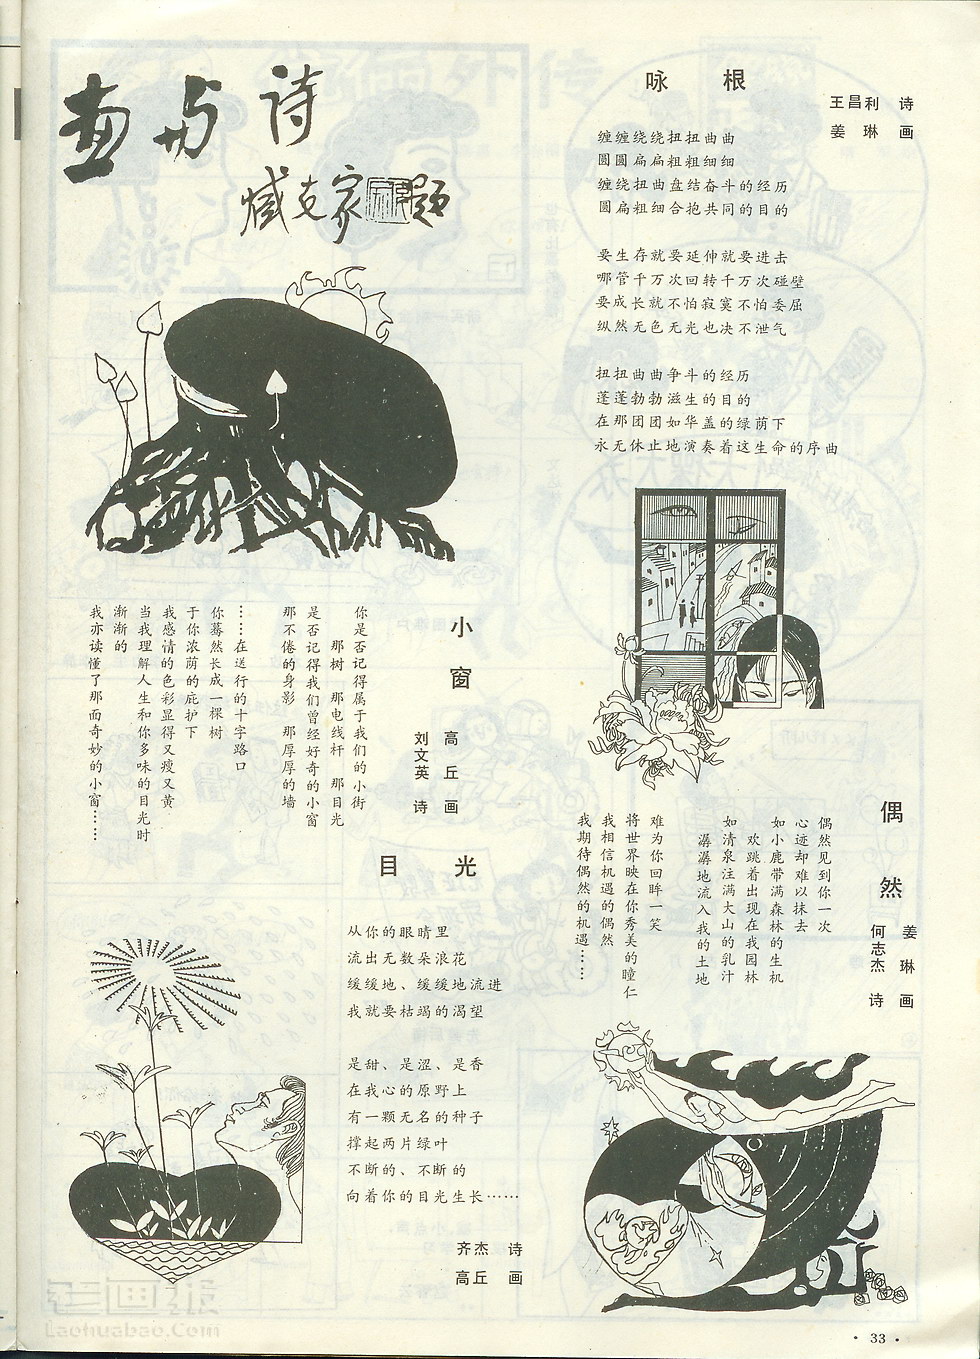 画与诗
臧克家题
咏根
王昌利 诗
姜琳 画
缠缠绕绕扭扭曲曲
圆圆扁扁粗粗细细
缠绕扭曲盘结奋斗的经历
圆扁粗细合抱共同的目的
要生存就要延伸就要进击
哪管千万次回转千万次碰壁
要成长就不怕寂寞不怕委屈
纵然无色无光也决不泄气
扭扭曲曲争斗的经历
蓬蓬勃勃滋生的目的
在那团团如华盖的绿荫下
永无休止地演奏着这生命的序曲
小窗
高丘 画
刘文英 诗
你是否记得属于我们的小街
那树 那电线杆 那目光
是否记得我们曾经好奇的小窗
那不倦的身影 那厚厚的墙
……在送行的十字路口
你蓦然长成一棵树
于你浓荫的庇护下
我感情的色彩显得又瘦又黄
当我理解人生和你多味的目光时
渐渐的
我亦读懂了那面奇妙的小窗……
偶然
姜琳 画
何志杰 诗
偶然见到你一次
心迹却难以抹去
如小鹿带满森林的生机
欢跳着出现在我园林
如清泉注满大山的乳汁
潺潺地流入我的土地
难为你回眸一笑
将世界映在你秀美的瞳仁
我相信机遇的偶然
我期待偶然的机遇……
目光
从你的眼睛里
流出无数朵浪花
缓缓地、缓缓地流进
我就要枯竭的渴望
是甜、是涩、是香
在我心的原野上
有一颗无名的种子
撑起两片绿叶
不断的、不断的
向着你的目光生长……
齐杰 诗
高丘 画
老画报
Laohuabao.Com
·33·